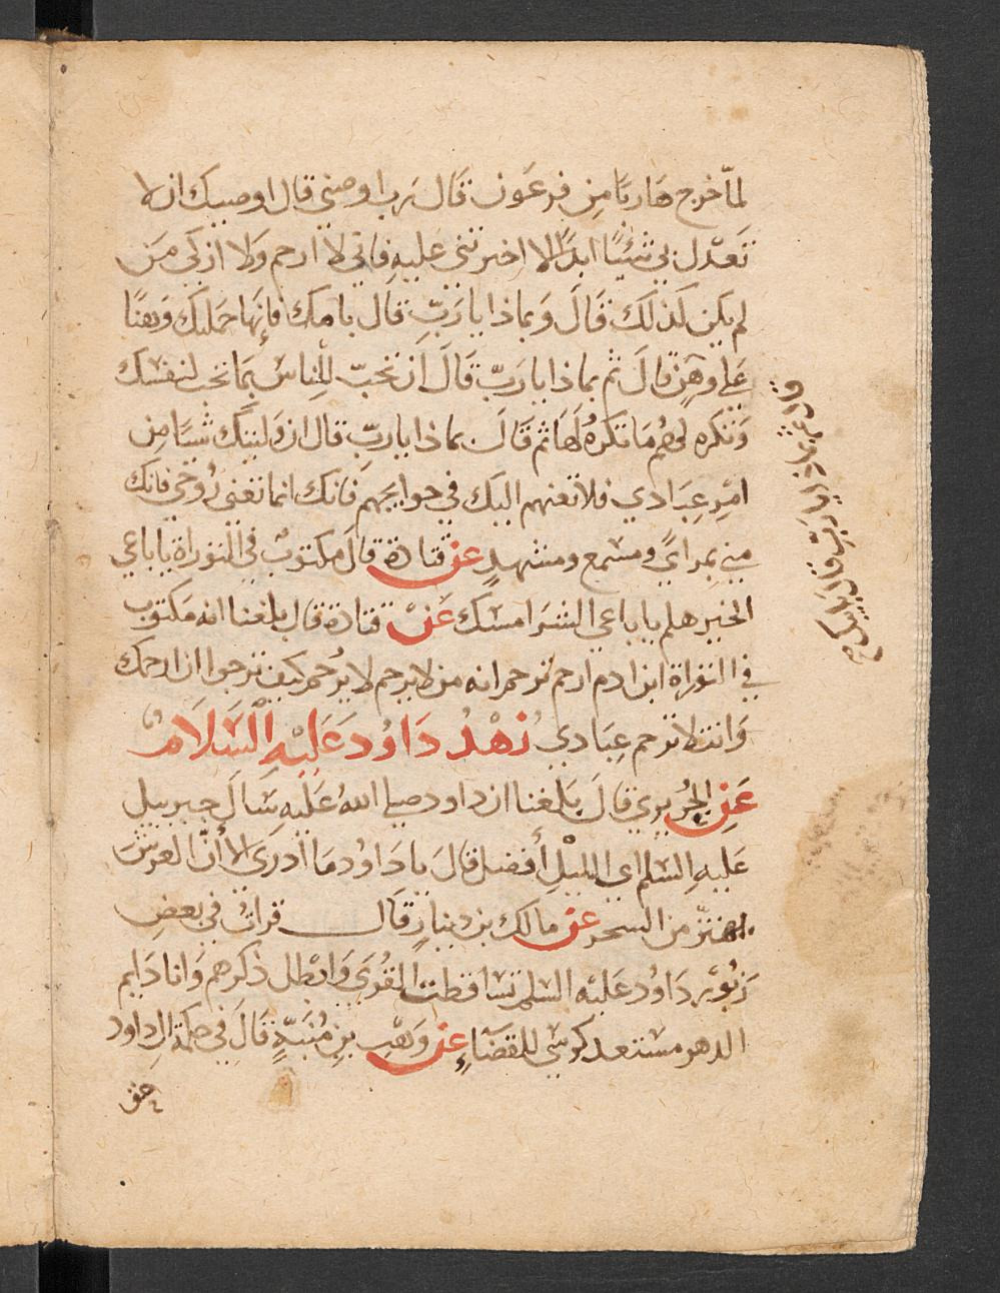 لمّا خرج هاربًا من فرعون قال رب اوصني قال اوصيك ان لا
تعدل بي شئيًا ابدًا الا اخترتني عليه فاني لا ارحم ولا ازكي من
لم يكن كذلك قال وبماذا يا ربّ قال بامك فإنها حملتك وهنًا
على وهنٍ قال ثم بماذا يا ربّ قال ان تحبّ للناس بما تحب لنفسك
وتكره لهم ما تكره لها ثم قال بماذا يا ربّ قال ان وليتك شيئا من
امر عبادي فلا تعنهم اليك في حوايجهم فانك انما تعني روحي فانك
مني بمرايً ومسمع ومشهدٍ عن قتادة قال مكتوب في التوراة يا باغي
الخير هلم يا باغي الشر امسك عن قتادة قال بلغنا انه مكتوب
في التوراة ابن ادم ارحم ترحم انه من لا يرحم لا يُرحم كيف ترجوا ان ارحمك
وانت لا ترحم عبادي زهدُ داود عَليْه السَّلَام
عن الجُريري قال بلغنا ان داود صلى الله عليه سال جبرييل
عليه السلم اي الليل أفضل قال يا داوُد ما أدري الا أنّ العرش
يهتزّ من السحر عن مالك بن دينارٍ قال قرات في بعض
زبوُر داوُد عليه السلم تساقطت القُوَي وابْطل ذكرهم وانا دَايم
الدهر مستعد كرسي للقضاءِ عن وهْب بن مُنبّهٍ قال في حكمة ال داود
حق